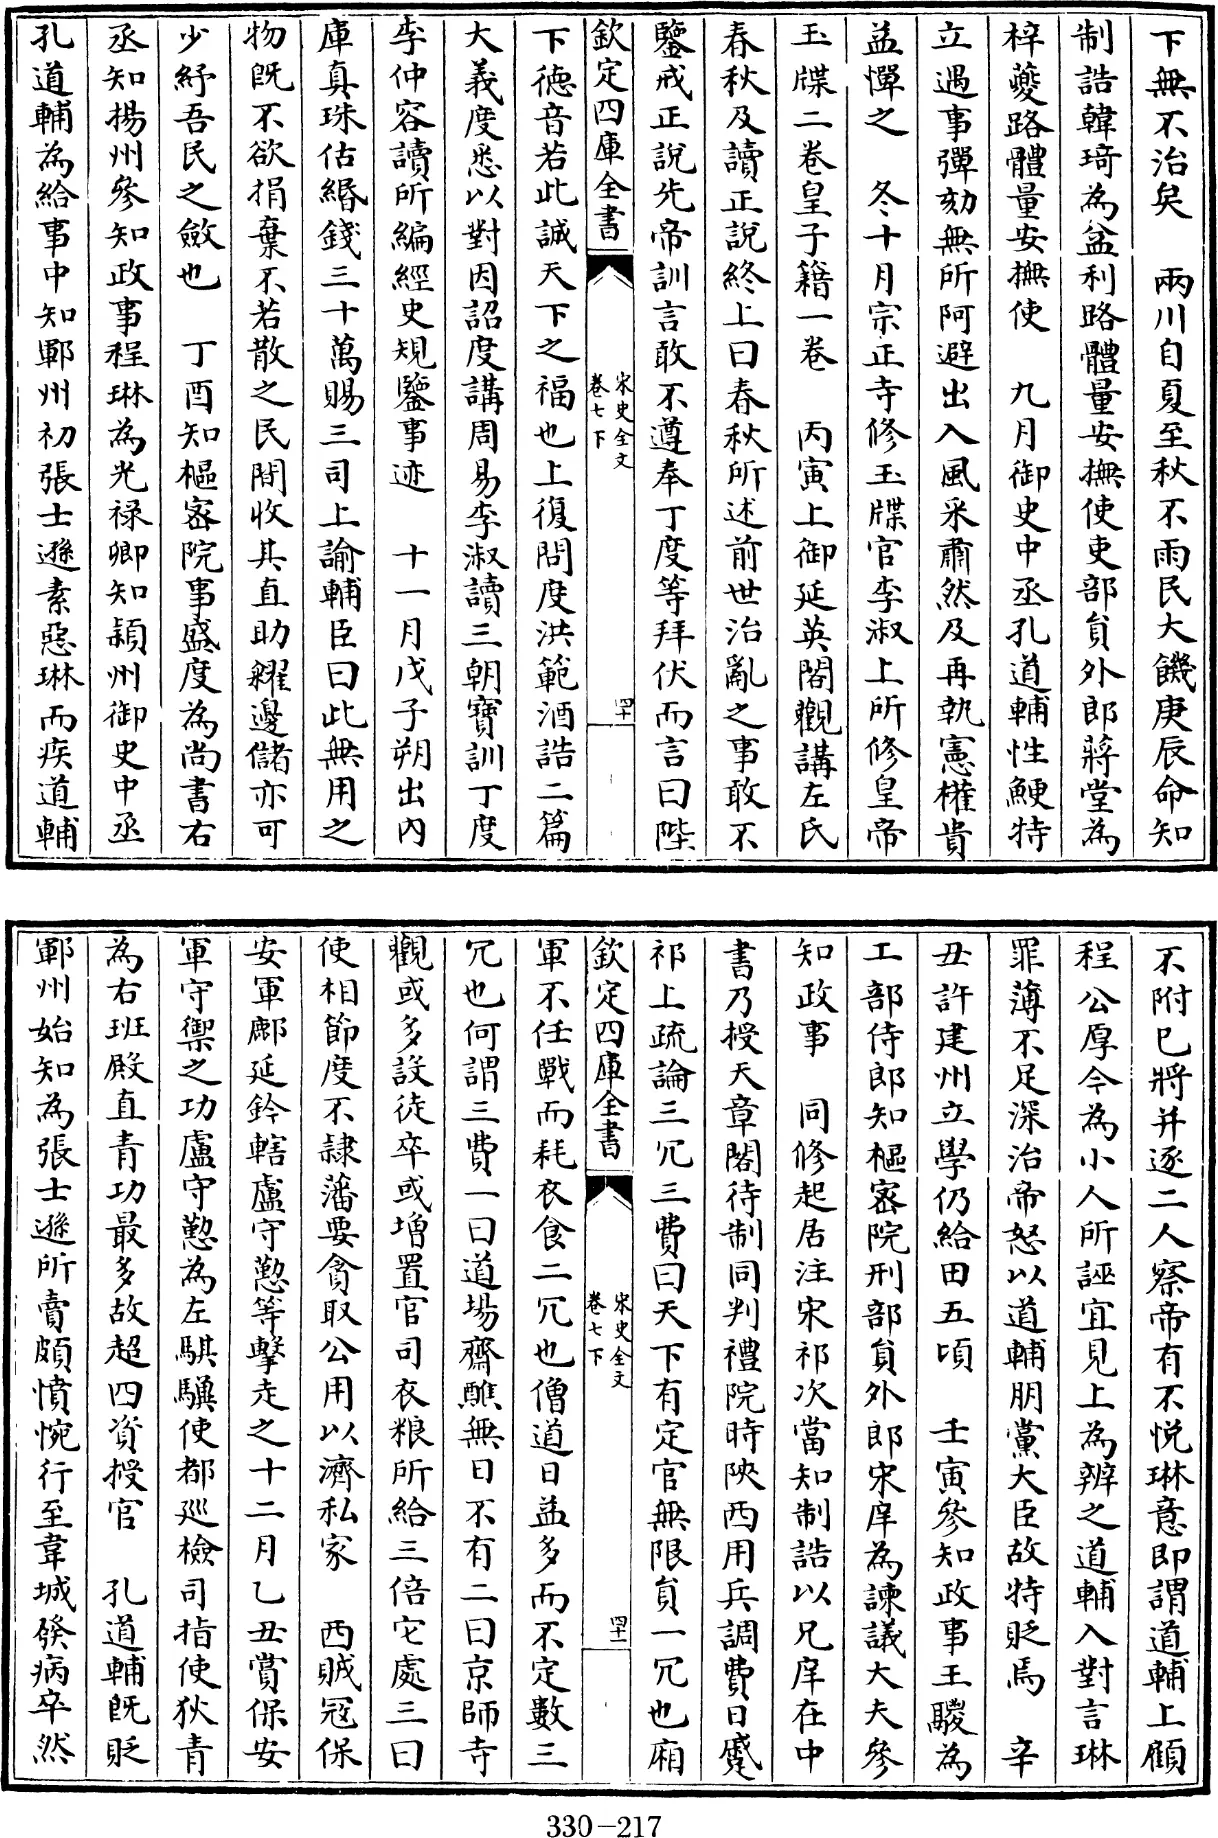 下無不治矣　兩川自夏至秋不雨民大饑庚辰命知
制誥韓琦為益利路體量安撫使吏部貟外郎蔣堂為
梓夔路體量安撫使　九月御史中丞孔道輔性鯁特
立遇事彈劾無所阿避出入風采肅然及再執憲權貴
益憚之　冬十月宗正寺修玉牒官李淑上所修皇帝
玉牒二卷皇子籍一卷　丙寅上御延英閣觀講左氏
春秋及讀正說終上曰春秋所述前世治亂之事敢不
鑒戒正說先帝訓言敢不遵奉丁度等拜伏而言曰陛
欽定四庫全書　宋史全文卷七下　四十
下德音若此誠天下之福也上復問度洪範酒誥二篇
大義度悉以對因詔度講周易李淑讀三朝寶訓丁度
李仲容讀所編經史規鑒事迹　十一月戊子朔出內
庫真珠估緡錢三十萬賜三司上諭輔臣曰此無用之
物既不欲捐棄不若散之民間收其直助糴邊儲亦可
少紓吾民之斂也　丁酉知樞密院事盛度為尚書右
丞知揚州參知政事程琳為光禄卿知潁州御史中丞
孔道輔為給事中知鄆州初張士遜素惡琳而疾道輔
不附巳將并逐二人察帝有不悅琳意即謂道輔上顧
程公厚今為小人所誣宜見上為辨之道輔入對言琳
罪薄不足深治帝怒以道輔朋黨大臣故特貶焉　辛
丑許建州立學仍給田五頃　壬寅參知政事王鬷為
工部侍郎知樞密院刑部貟外郎宋庠為諫議大夫參
知政事　同修起居注宋祁次當知制誥以兄庠在中
書乃授天章閣待制同判禮院時陝西用兵調費日蹙
祁上疏論三冗三費曰天下有定官無限貟一冗也廂
欽定四庫全書　宋史全文卷七下　四十一
軍不任戰而耗衣食二冗也僧道日益多而不定數三
冗也何謂三費一曰道場齋醮無日不有二曰京師寺
觀或多設徒卒或增置官司衣粮所給三倍它處三曰
使相節度不隷藩要貪取公用以濟私家　西賊冦保
安軍鄜延鈐轄盧守懃等擊走之十二月乙丑賞保安
軍守禦之功盧守懃為左騏驥使都廵檢司指使狄青
為右班殿直青功最多故超四資授官　孔道輔既貶
鄆州始知為張士遜所賣頗憤惋行至韋城發病卒然
330-217